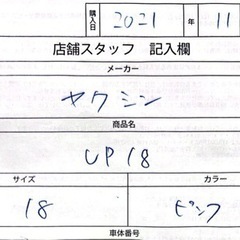 購入日 2021 年 11
店舗スタッフ 記入欄
メーカー
ヤクシン
商品名
UP18
サイズ カラー
18 ピンク
車体番号